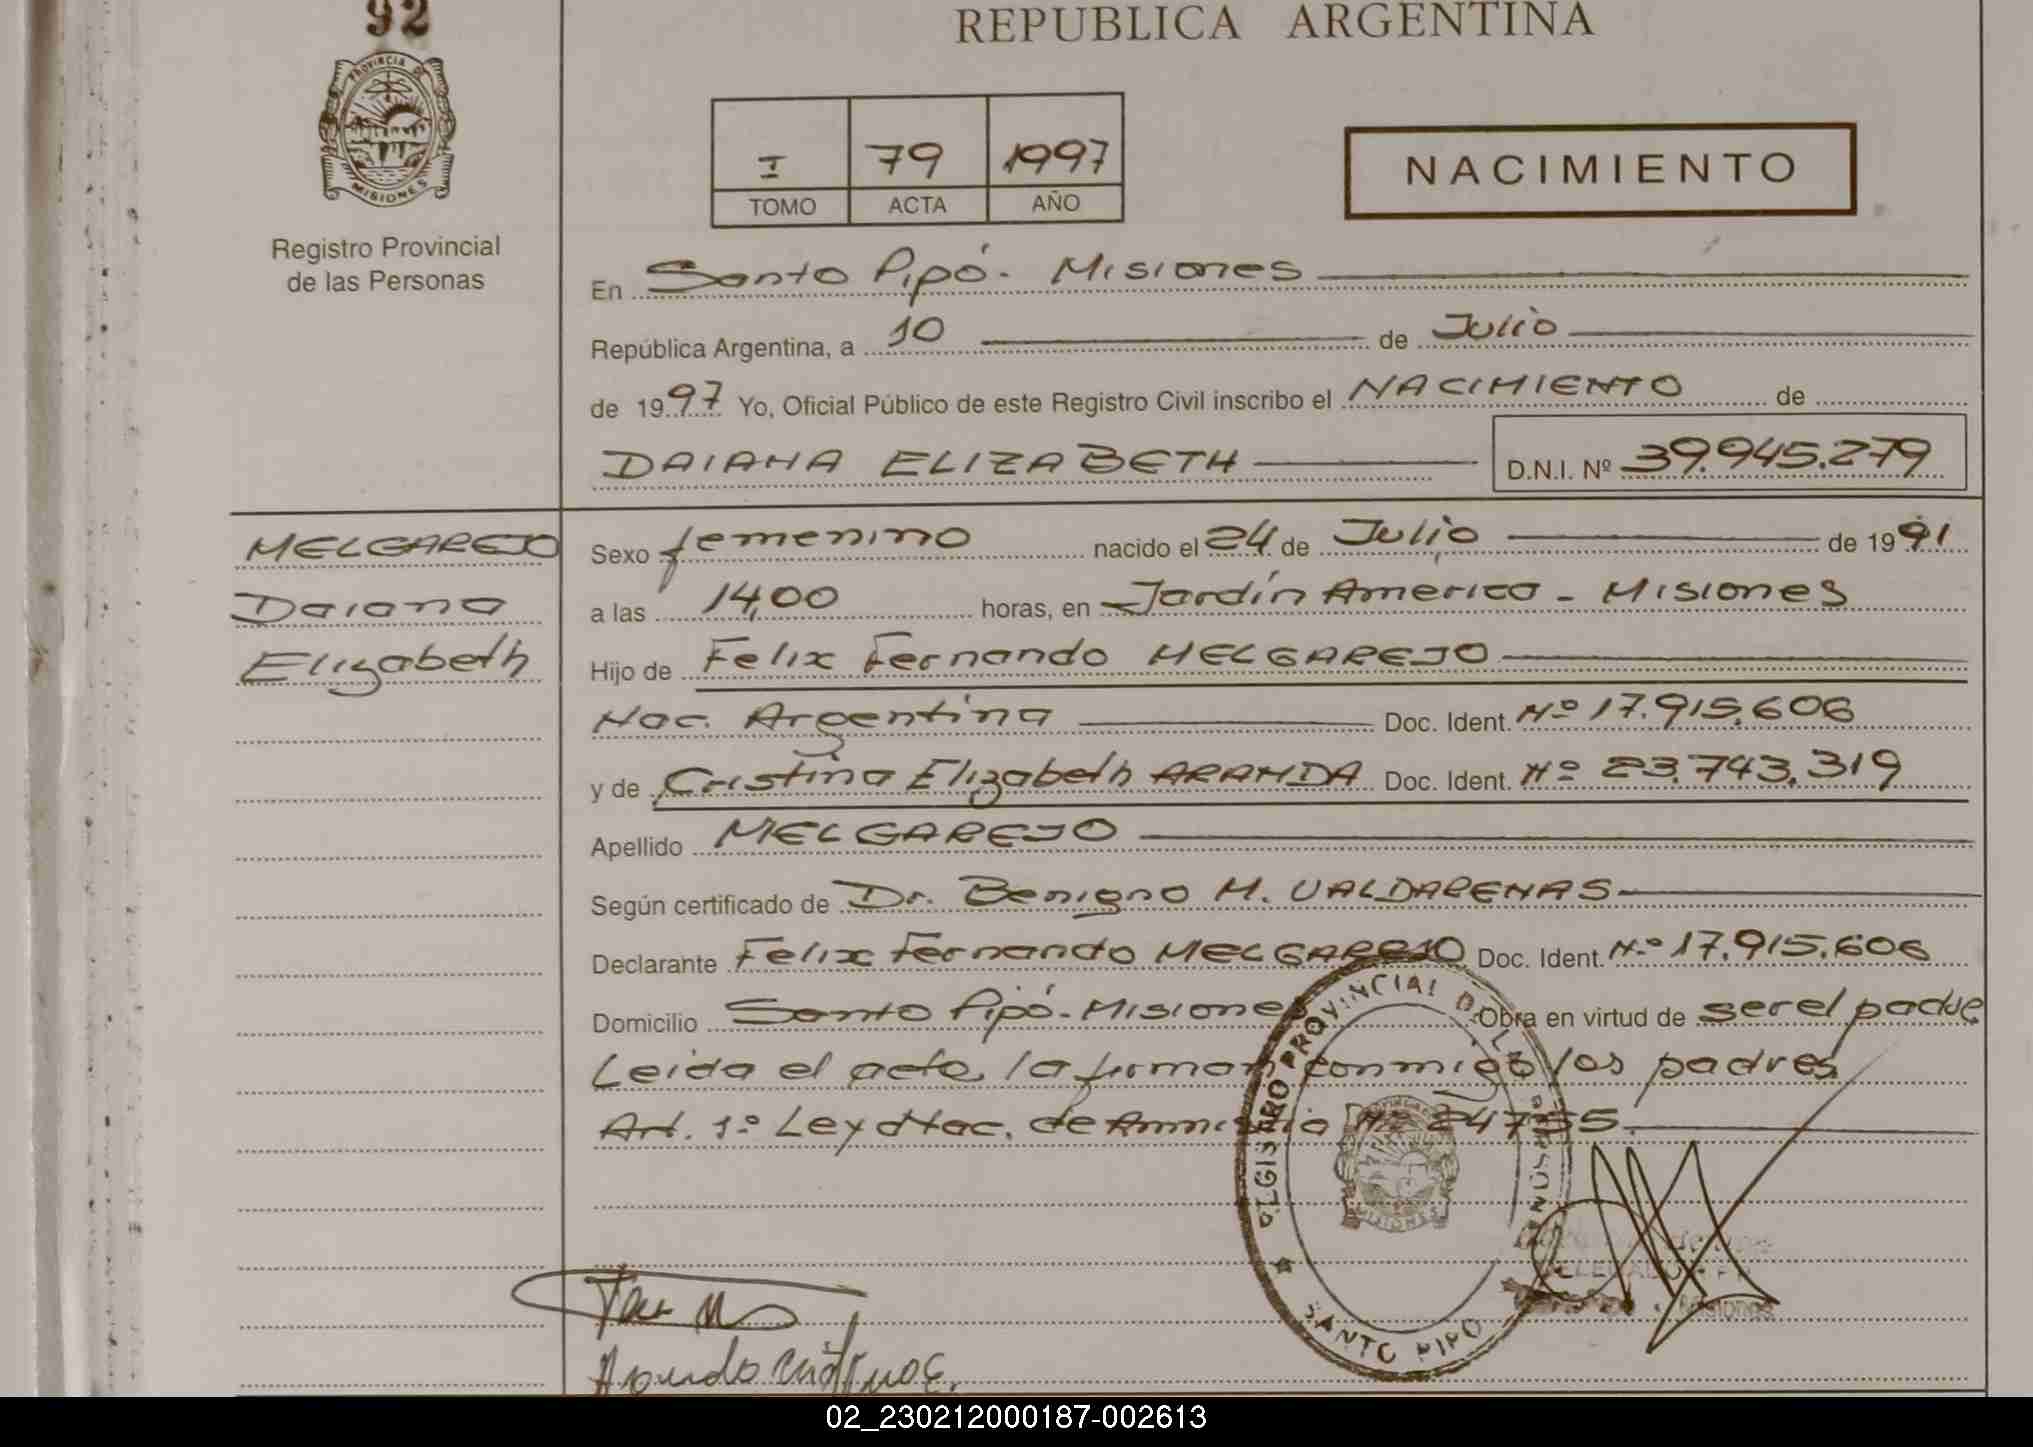 92
REPUBLICA ARGENTINA
PROVINCIA DE
MISIONES
Registro Provincial
de las Personas
I 79 1997
TOMO ACTA AÑO
NACIMIENTO
En Santo Pipó - Misiones
República Argentina, a 10 de Julio
de 1997 Yo, Oficial Público de este Registro Civil inscribo el NACIMIENTO de
DAIANA ELIZABETH D.N.I. Nº 39.945.279
MELGAREJO
Daiana
Elizabeth
Sexo femenino nacido el 24 de Julio de 1991
a las 14,00 horas, en Jardín America - Misiones
Hijo de Felix Fernando MELGAREJO
Nac. Argentina Doc. Ident. Nº 17.915.606
y de Cristina Elizabeth ARANDA Doc. Ident. Nº 23.743.319
Apellido MELGAREJO
Según certificado de Dr. Benigno M. VALDARENAS
Declarante Felix Fernando MELGAREJO Doc. Ident. Nº 17.915.606
Domicilio Santo Pipó - Misiones Obra en virtud de ser el padre
Leida el acta, la firman conmigo los padres
Art. 1º Ley Nac. de Amnistia Nº 24755.
REGISTRO PROVINCIAL DE LAS PERSONAS
MISIONES
SANTO PIPO
Misiones
02_230212000187-002613